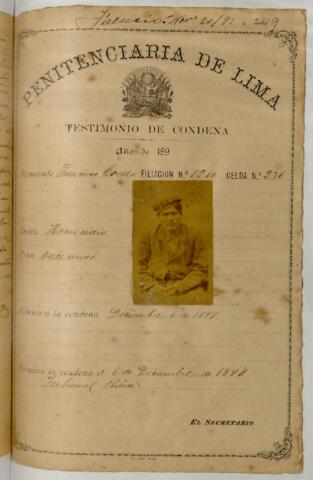 Nov 20/93 249
PENITENCIARIA DE LIMA
TESTIMONIO DE CONDENA
Año de 189
Rematado Francisco FILIACION N.º CELDA N.º 236
Delito Homicidio
Pena once años
Comenzó la condena Diciembre 6 de 1887
Termina la condena el 6 de Diciembre de 1898
Tribunal Piura
EL SECRETARIO